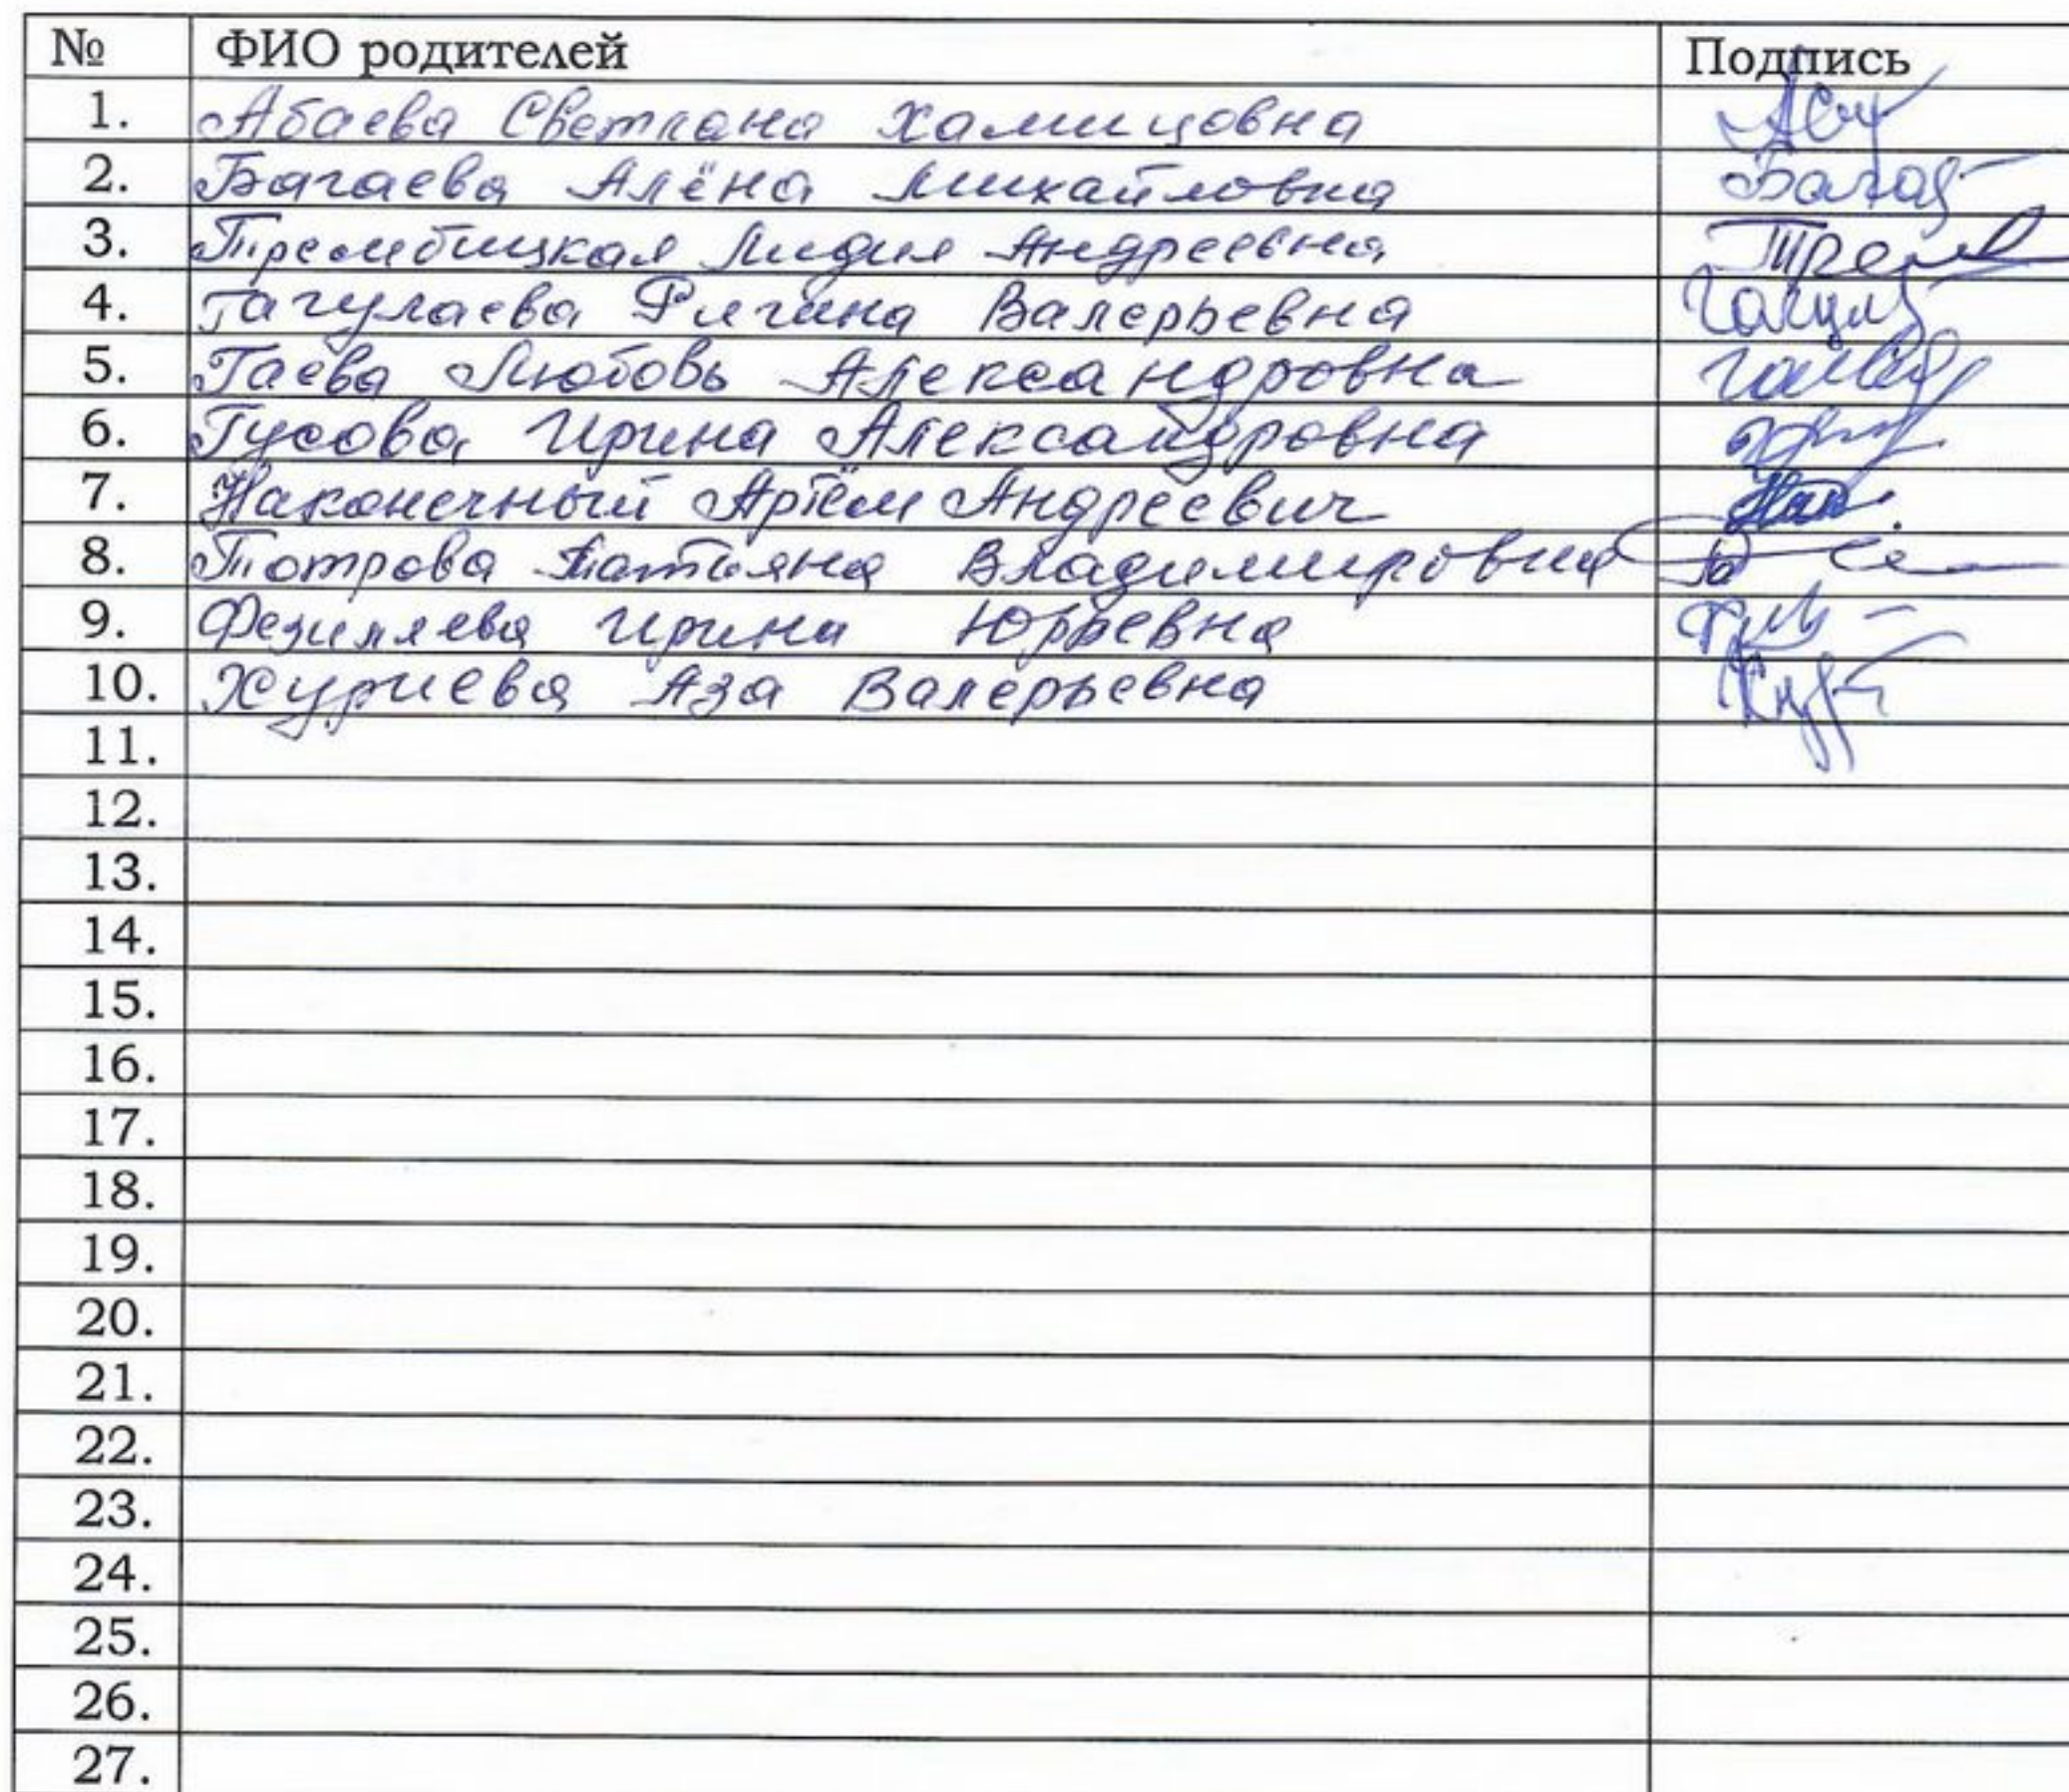 № ФИО родителей Подпись
1. Абаева Светлана Хамицовна
2. Багаева Алёна Михайловна Багаа
3. Трембицкая Лидия Андреевна Трем
4. Гагулаева Валерьевна Гагул
5. Гаева Любовь Александровна Гаева
6. Гусова Ирина Александровна
7. Наконечный Артём Андреевич Нак.
8. Тотрова Татьяна Владимировна
9. Фезиляева Ирина Юрьевна
10. Хуриева Аза Валерьевна
11.
12.
13.
14.
15.
16.
17.
18.
19.
20.
21.
22.
23.
24.
25.
26.
27.